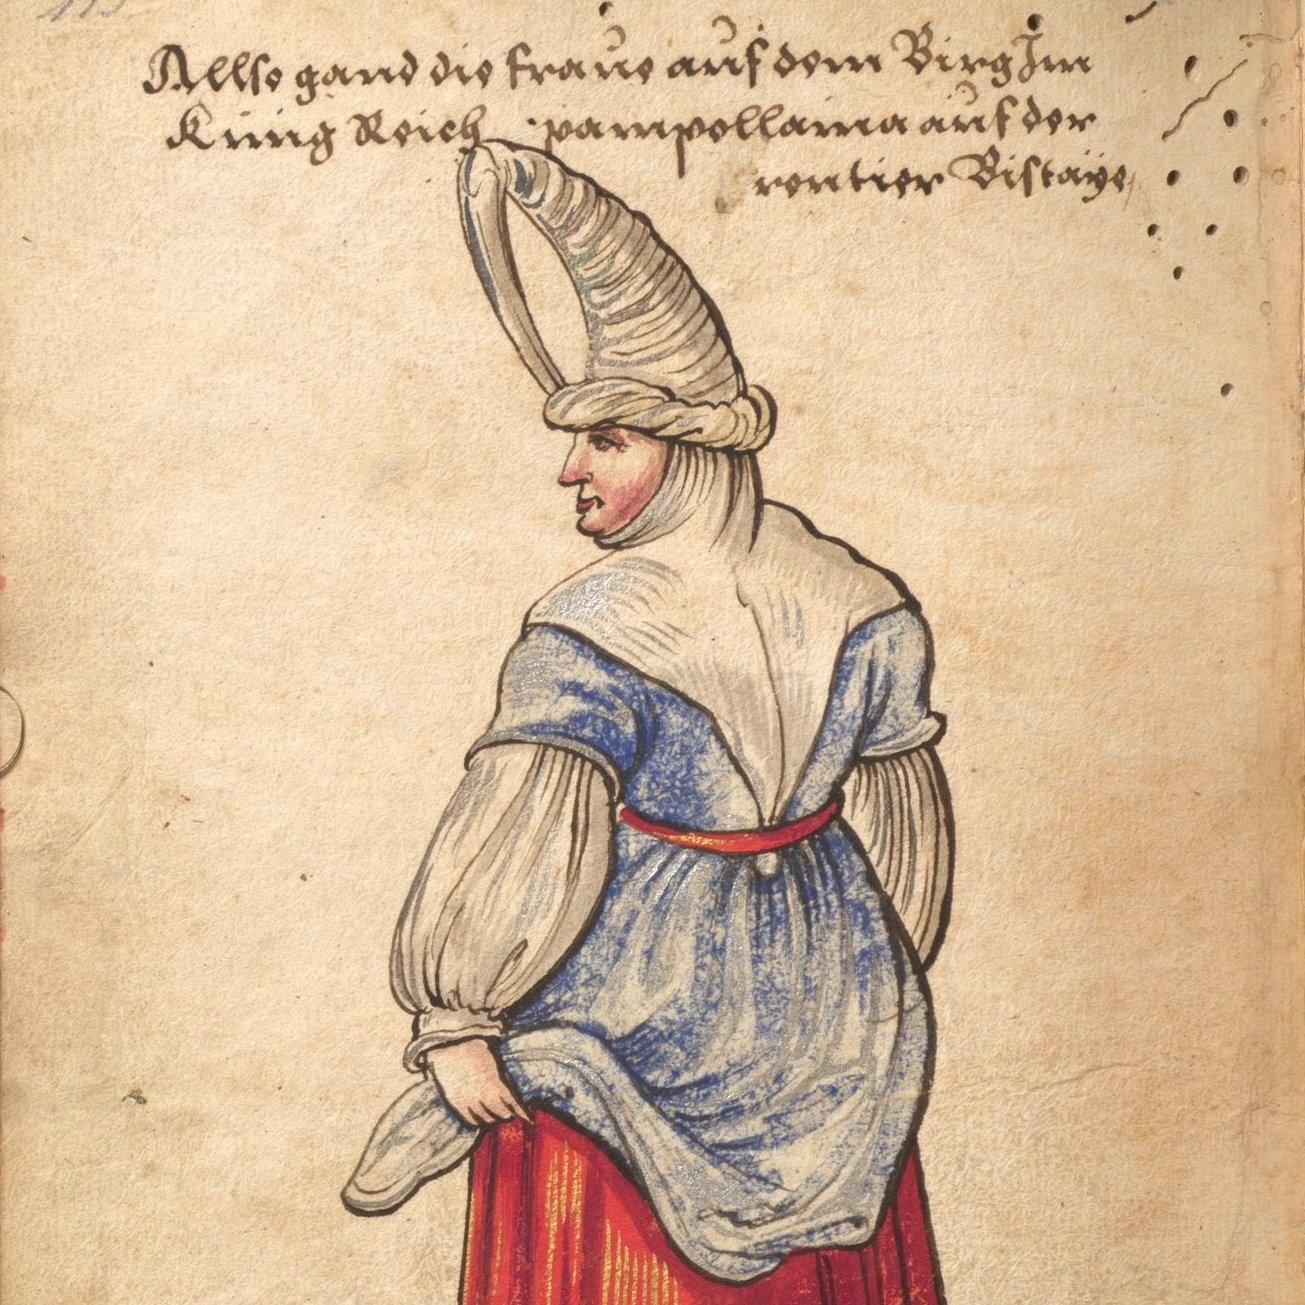 Allso gand die fraue auf dem Birg Im
Kunig Reich pampellania auf der
rontier Biscaÿe